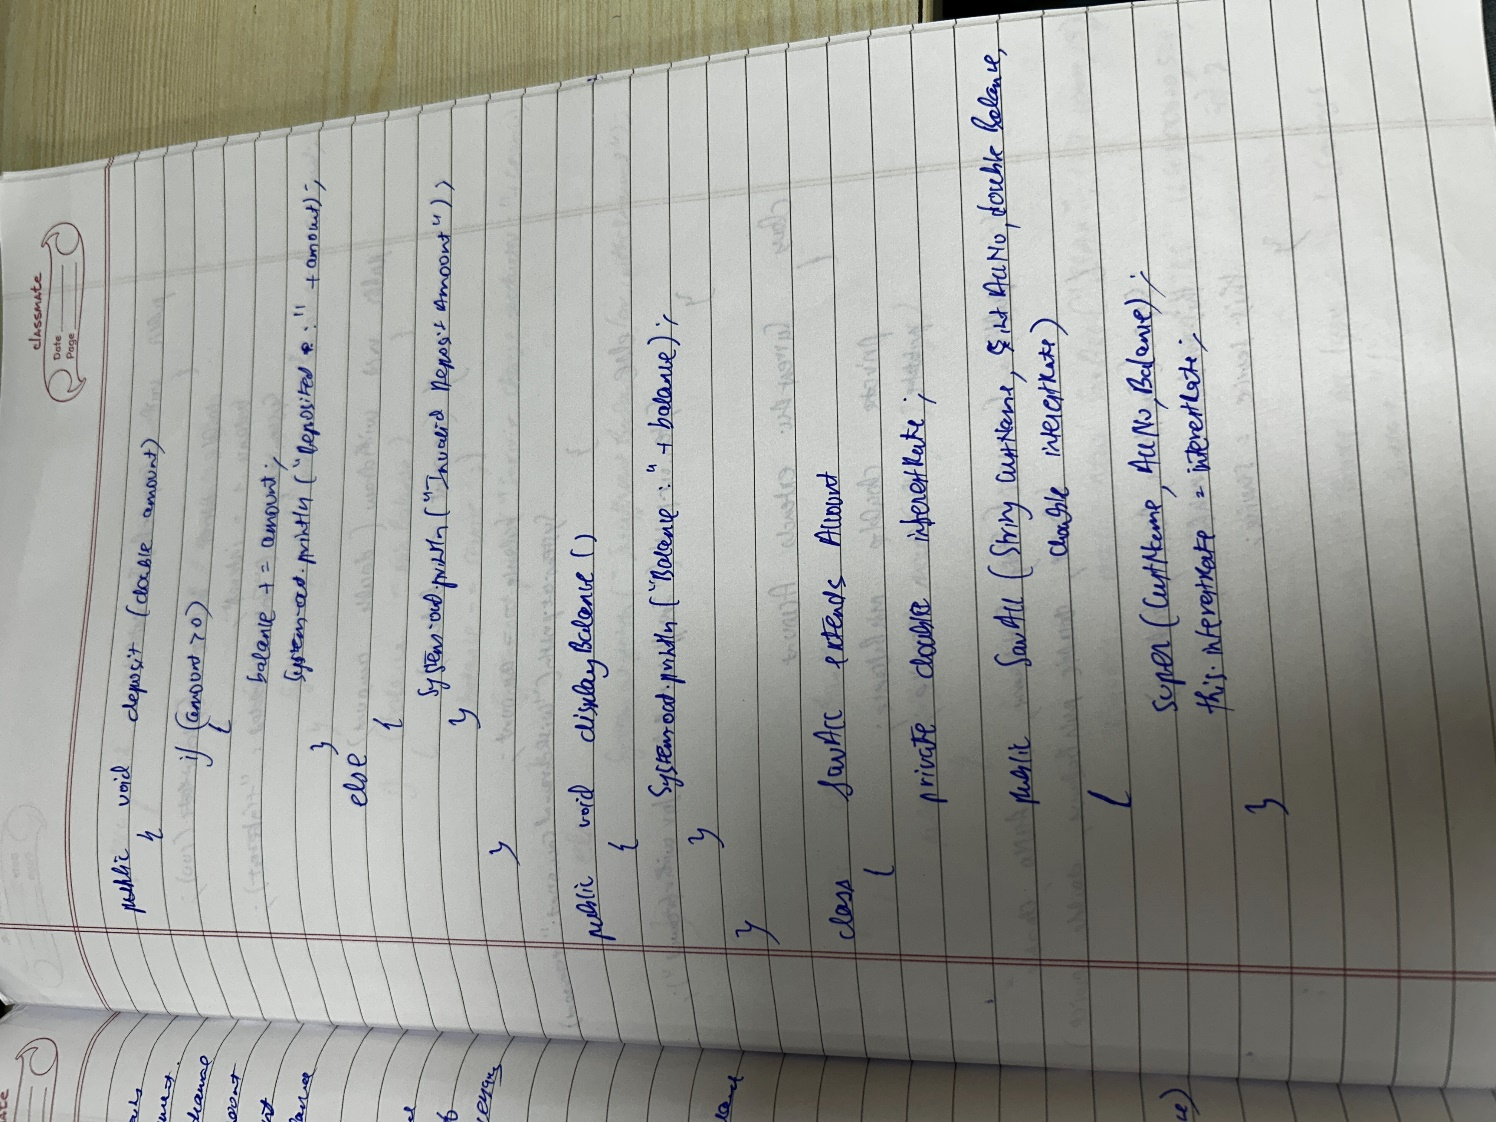 classmate
Date
Page
public void deposit (double amount)
{
if (amount > 0)
{
balance += amount;
System.out.println ("Deposited : " + amount);
}
else
{
System.out.println ("Invalid Deposit Amount");
}
}
public void displayBalance ()
{
System.out.println ("Balance : " + balance);
}
}
class SavAcc extends Account
{
private double interestRate;
public SavAcc (String CustName, int AccNo, double Balance,
double interestRate)
{
super (CustName, AccNo, Balance);
this.interestRate = interestRate;
}